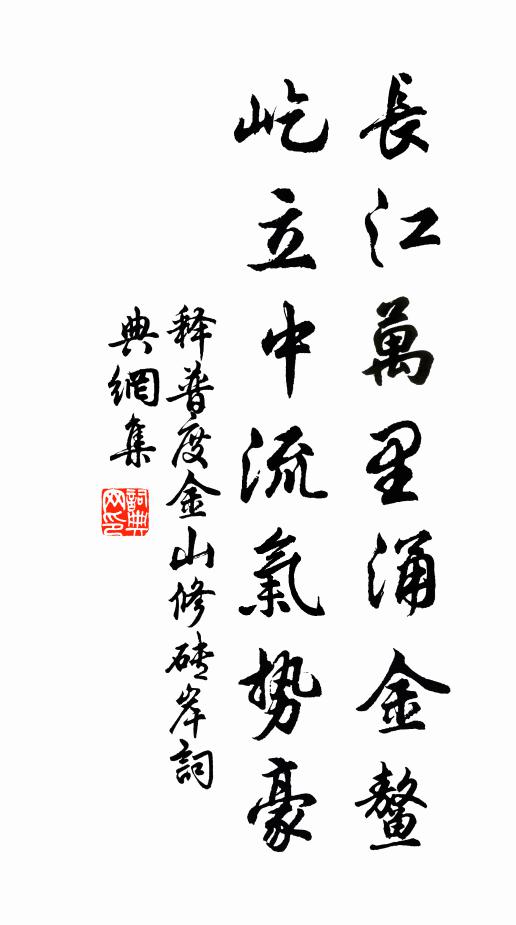 長江萬里涌金鰲
屹立中流氣勢豪
释普度金山修磚岸詞
典網集
詞典網印